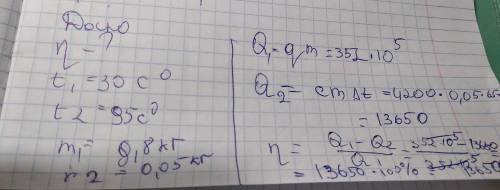 Досро
η - ?
t₁ = 30 C⁰
t₂ = 95 C⁰
m₁ = 0,8 кг
m 2 = 0,05 кг
Q₁ = qm = 352·10⁵
Q₂ = cmΔt = 4200·0,05·65
= 13650
η = Q₁ - Q₂ / Q₁ = 352·10⁵ - 13650
= 13650·100%